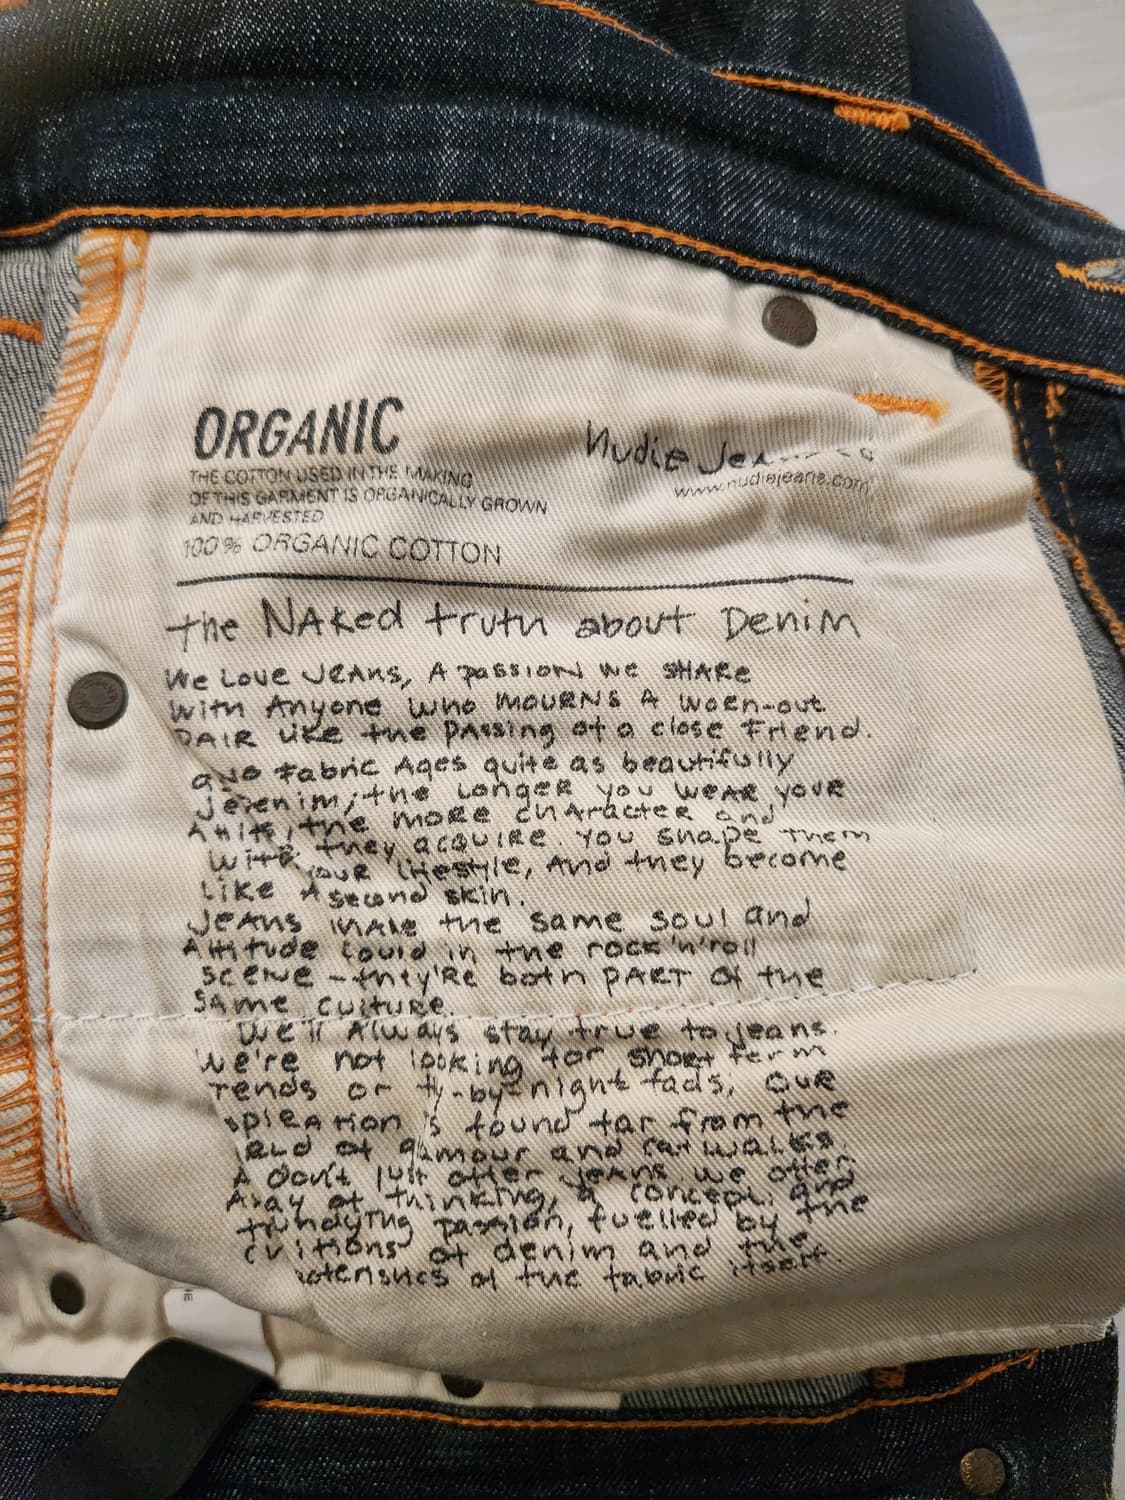 ORGANIC
THE COTTON USED IN THE MAKING
OF THIS GARMENT IS ORGANICALLY GROWN
AND HARVESTED
100% ORGANIC COTTON
Nudie
www.nudiejeans.com
the NAKed truth about Denim
We Love JeANs, A passION we SHARe
with Anyone who MOURNS A worn-out
PAIR like the pAssing of a close Friend.
Fabric Ages quite as beautifully
the LONGER you WEAR YOUR
the MORE character and
they acquire. You shape them
with your lifestyle, And they become
Like A second skin.
JeANs the same soul and
Attitude in the rock'n'roll
scene - they're both pART of the
SAme culture.
We'll Always stay true to jeans.
We're not looking for short term
or fly-by-night fads, OUR
is found far from the
of and catwalks.
don't just offer jeans. We offer
of thinking, a concept, and
passion, fuelled by the
of denim and the
of the fabric itself.